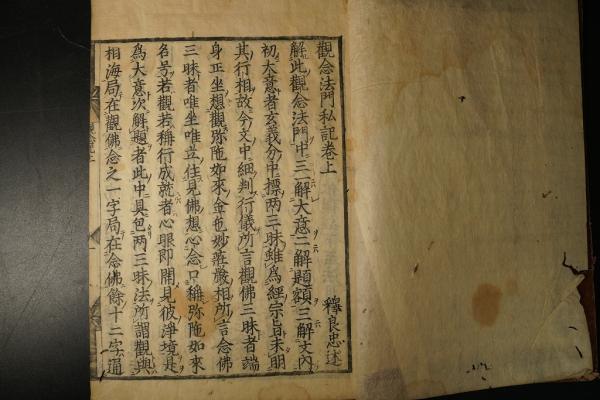 觀念法門私記卷上
釋良忠述
解此觀念法門中三一解大意二解題額三解文內
初大意者玄義分中標兩三昧雖爲經宗旨未明
其行相故今文中細判行儀所言觀佛三昧者端
身正坐想觀弥陁如來金色妙莊嚴相所言念佛
三昧者唯坐唯立住見佛想心念口稱弥陁如來
名号若觀若稱行成就者心眼即開見彼淨境是
爲大意次解題者此中具包兩三昧法所謂觀與
相海局在觀佛念之一字局在念佛餘十二字通